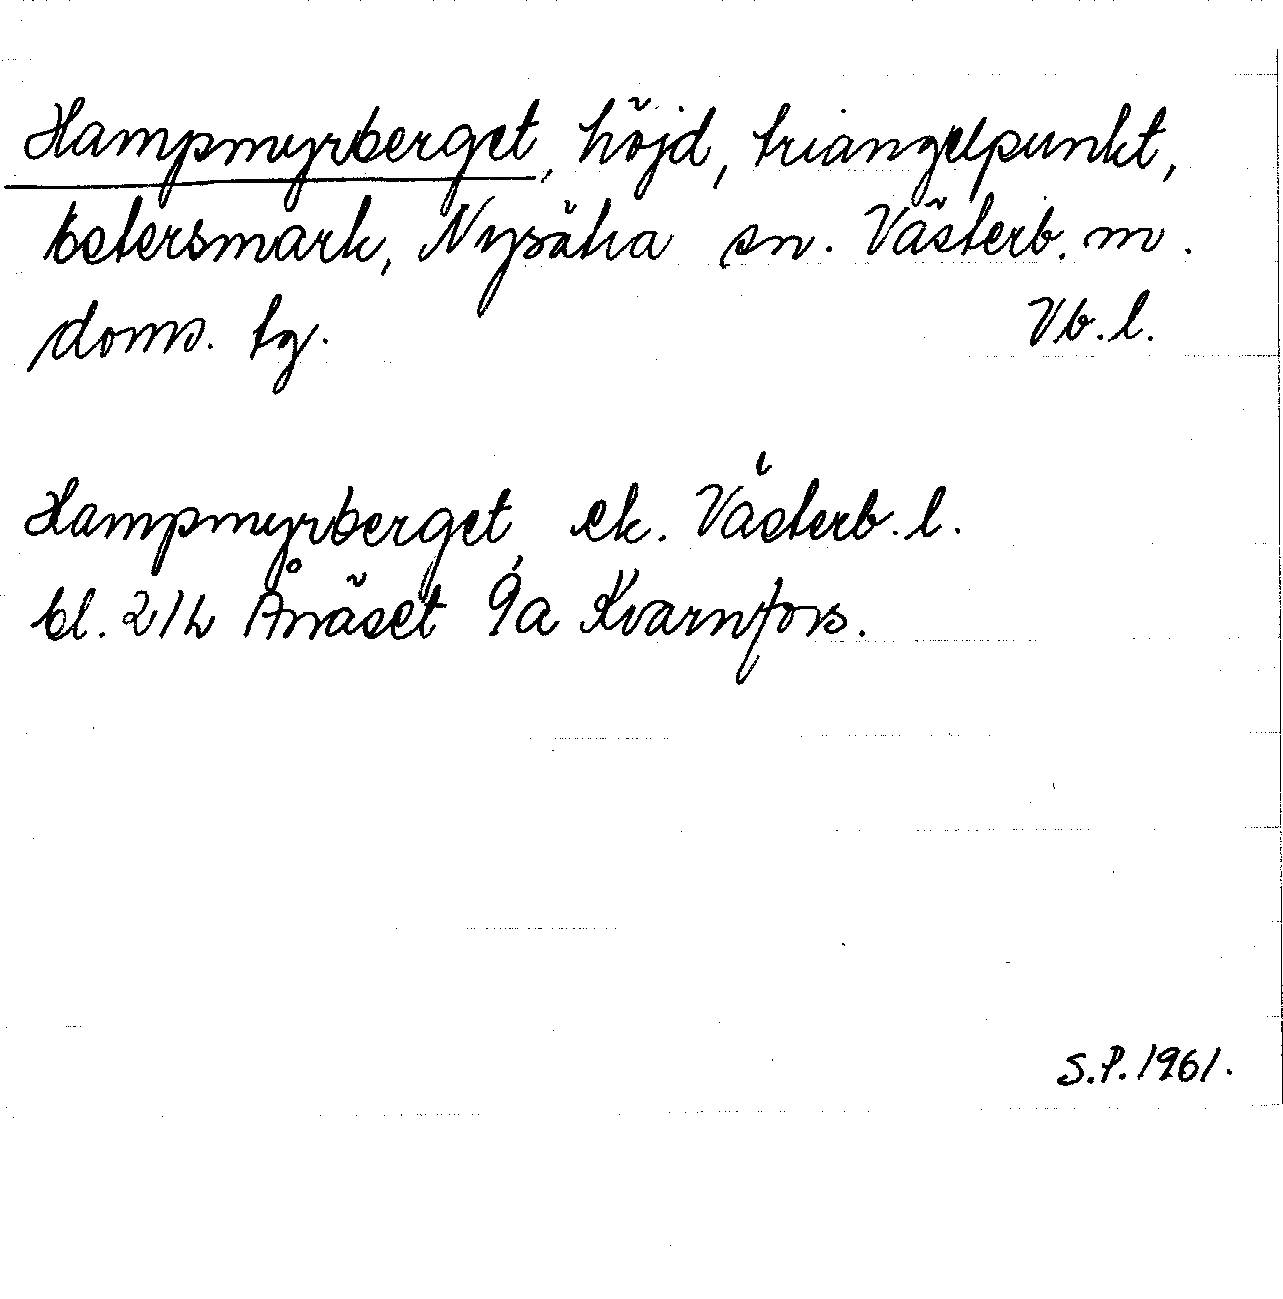 Hampmyrberget, höjd, triangelpunkt,
Petersmark, Nysätra sn. Västerb. m.
doms. tg. Vb. l.
Hampmyrberget, ek. Västerb. l.
bl. 21L Ånäset 9a Kvarnfors.
S.P. 1961.